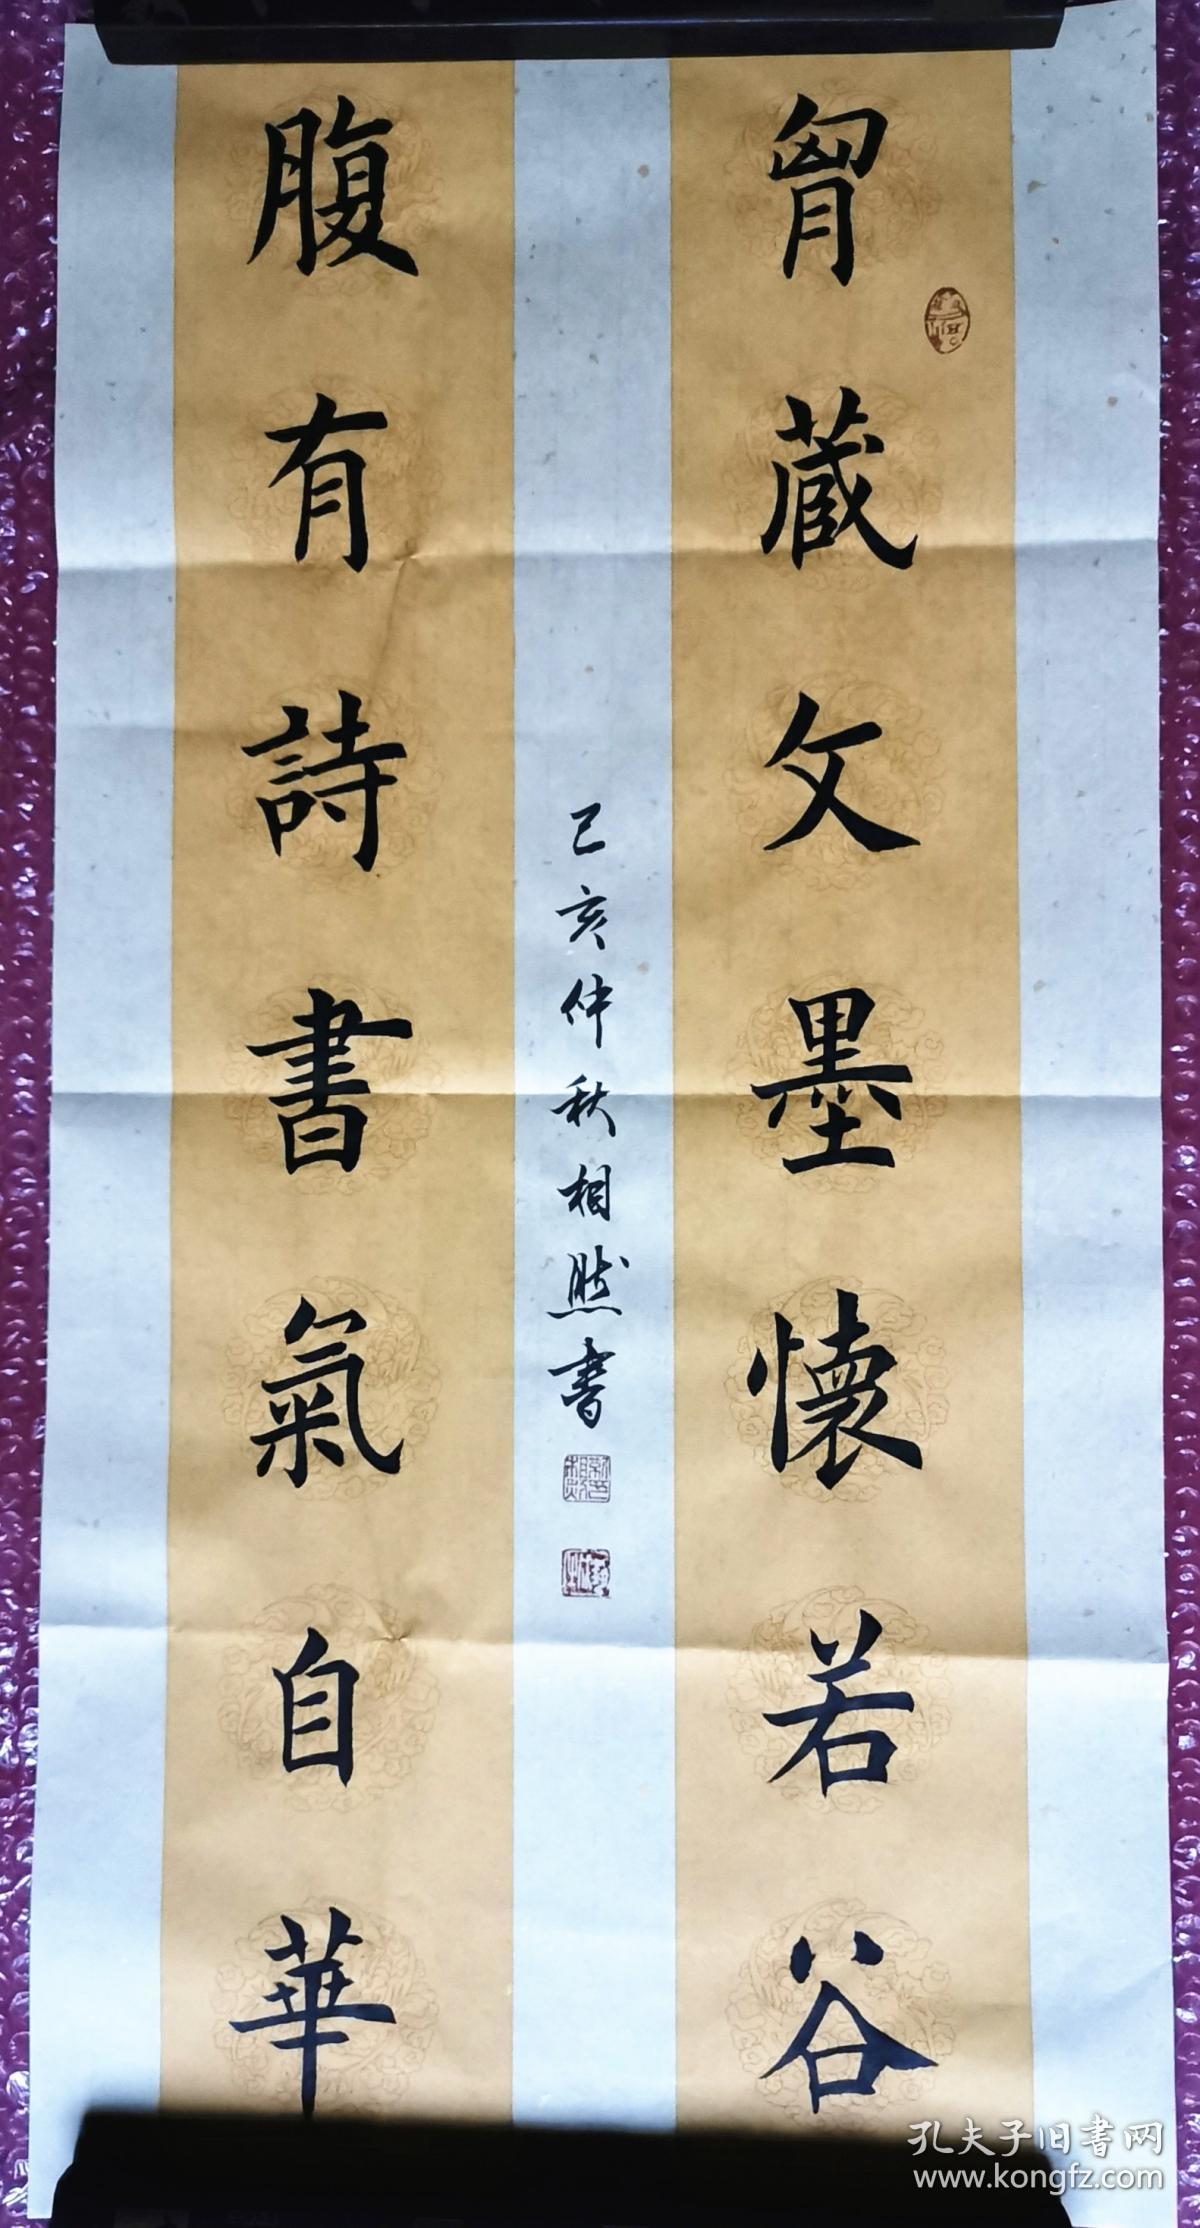 胷蔵文墨懷若谷
腹有詩書氣自華
己亥仲秋相然書
孔夫子旧書网
www.kongfz.com